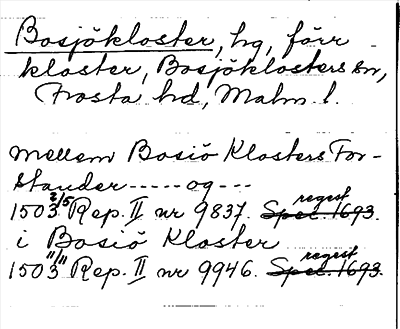 Bosjökloster, hg, förr
kloster, Bosjöklosters sn,
Frosta hd, Malm. l.
mellem Bosiö Klosters For-
stander ----- og ---
1503 2/5 Rep. II nr 9837. Spec. 1693. regest
i Bosiö Kloster
1503 11/11 Rep. II nr 9946. Spec. 1693. regest